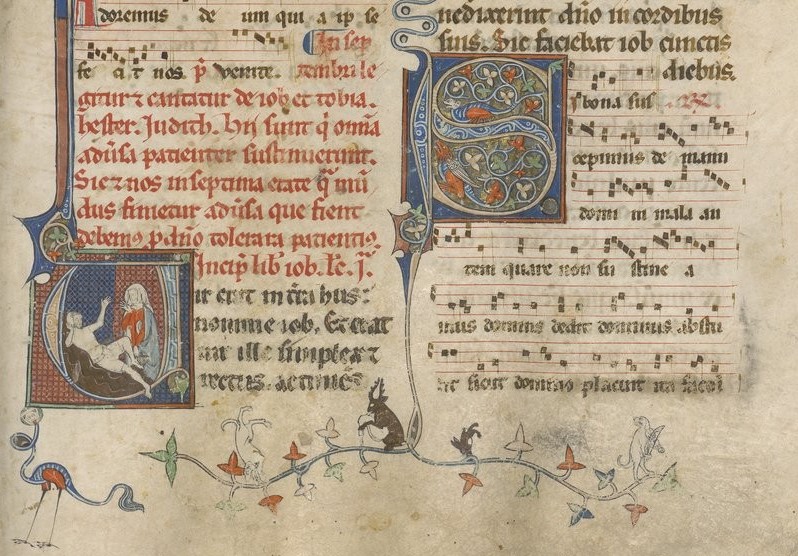 Adoremus de um qui a ip se
In sep
fe cit nos. p̄ Venite. tembri le
gitur ⁊ cantatur de iob et tobia.
hester. Judith. Hii sunt q̄ omīa
aduersa patienter sustinuerunt.
Sic ⁊ nos in septima etate q̄ mū
dus finietur aduersa que fient
debemus p dn̄o tolerara patientius.
Incip̄ lib̄ iob. lc̄. j.
ir erat in tr̄a hus:
nomine iob. Et erat
uir ille simplex ⁊
rectus. ac timēs
nedixerint dn̄o in cordibus
suis. Sic faciebat iob cunctis
diebus.
S i bona sus
cepimus de manu
domi ni mala au
tem quare non su stine a
mus dominus dedit dominus abstu
lit sicut domino placuit ita factū